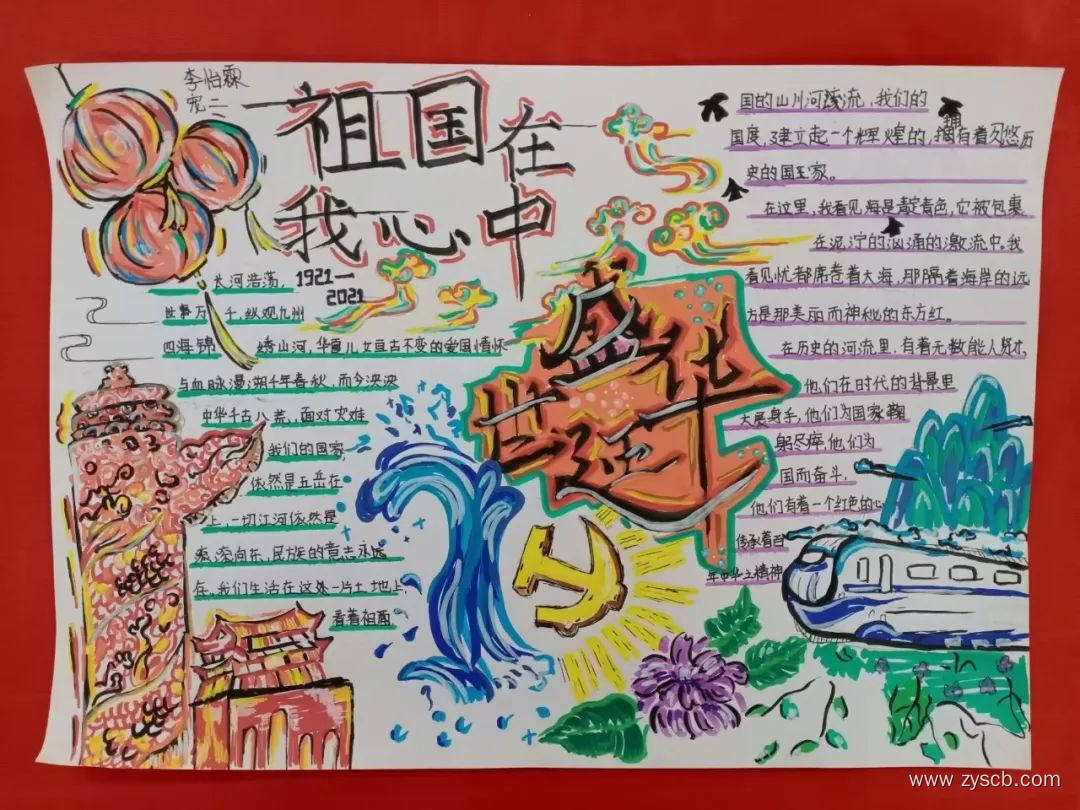 李怡霖
祖国在
我心中
1921—
2021
长河浩荡,
世事万千,纵观九州
四海锦绣山河,华夏儿女亘古不变的爱国情怀
与血脉漫溯千年春秋,而今泱泱
中华千古八荒,面对灾难
我们的国家,
依然是五岳在
上,一切江河依然是
滚滚向东,民族的意志永远
在。我们生活在这处一片土地上,
看着祖
盛华
世诞
国的山川河流,我们的
国度,建立起一个辉煌的,拥有着悠历
史的国家。
在这里,我看见海是靛青色,它被包裹
在泥泞的汹涌的激流中。我
看见忧郁席卷着大海,那隔着海岸的远
方是那美丽而神秘的东方红。
在历史的河流里,有着无数能人贤才。
他们在时代的背景里
大展身手,他们为国家鞠
躬尽瘁,他们为
国而奋斗,
他们有着一个红色的心
传承着百
年中华之精神
www.zyscb.com